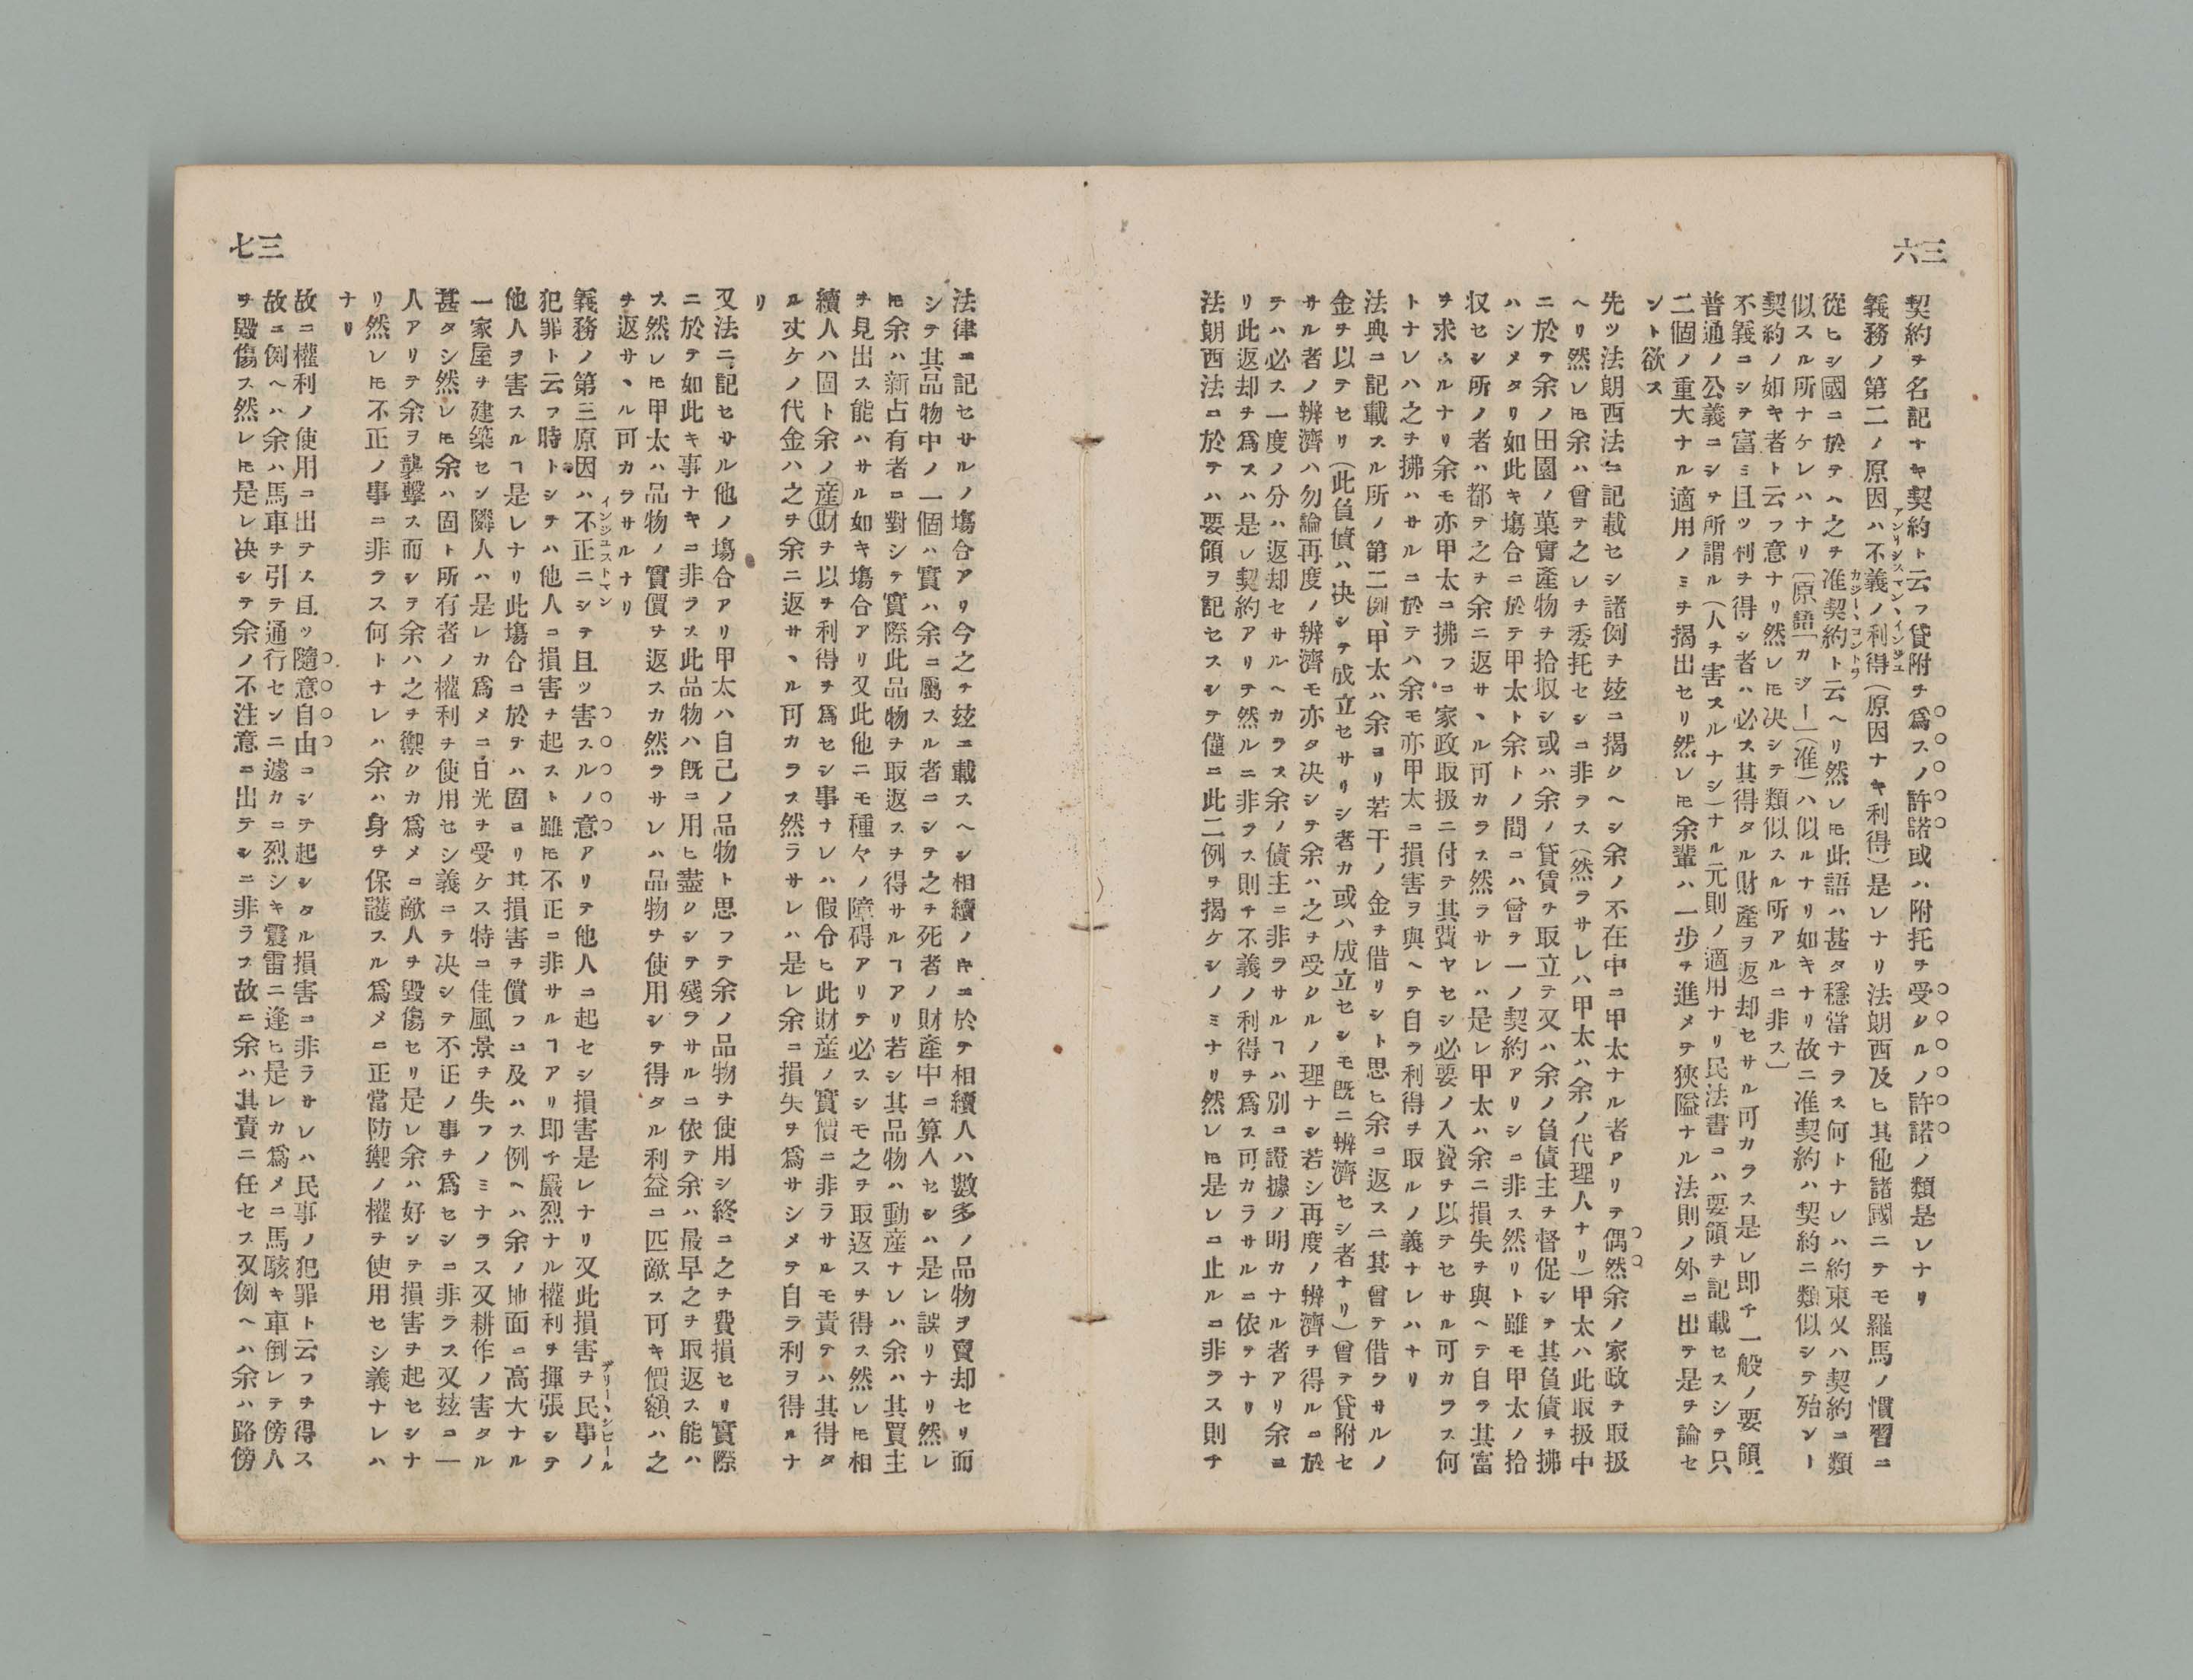 三六
契約ヲ名記ナキ契約ト云フ貸附ヲ爲スノ許諾或ハ附托ヲ受クルノ許諾ノ類是レナリ
義務ノ第二ノ原因ハ不義ノ利得(原因ナキ利得)是レナリ法朗西及ヒ其他諸國ニテモ羅馬ノ慣習ニ
從ヒシ國ニ於テハ之ヲ准契約ト云ヘリ然レㇳモ此語ハ甚タ穩當ナラス何トナレハ約束又ハ契約ニ類
似スル所ナケレハナリ〔原語「カジー」(准)ハ似ルナリ如キナリ故ニ准契約ハ契約ニ類似シテ殆ント
契約ノ如キ者ト云フ意ナリ然レㇳモ决シテ類似スル所アルニ非ス〕
不義ニシテ富ミ且ツ利ヲ得シ者ハ必ス其得タル財產ヲ返却セサル可カラス是レ即チ一般ノ要領
普通ノ公義ニシテ所謂ル(人ヲ害スルナシ)ナル元則ノ適用ナリ民法書ニハ要領ヲ記載セスシテ只
二個ノ重大ナル適用ノミヲ揭出セリ然レㇳモ余輩ハ一步ヲ進メテ狹隘ナル法則ノ外ニ出テ是ヲ論セ
ント欲ス
先ツ法朗西法ニ記載セシ諸例ヲ玆ニ揭クヘシ余ノ不在中ニ甲太ナル者アリテ偶然余ノ家政ヲ取扱
ヘリ然レㇳモ余ハ曾テ之レヲ委托セシニ非ラス(然ラサレハ甲太ハ余ノ代理人ナリ)甲太ハ此取扱中
ニ於テ余ノ田園ノ菓實產物ヲ拾収シ或ハ余ノ貸賃ヲ取立テ又ハ余ノ負債主ヲ督促シテ其負債ヲ拂
ハシメタリ如此キ塲合ニ於テ甲太ト余トノ間ニハ曾テ一ノ契約アリシニ非ス然リト雖モ甲太ノ拾
収セシ所ノ者ハ都テ之ヲ余ニ返サヽル可カラス然ラサレハ是レ甲太ハ余ニ損失ヲ與ヘテ自ラ其富
ヲ求ムルナリ余モ亦甲太ニ拂フニ家政取扱ニ付テ其費ヤセシ必要ノ入費ヲ以テセサル可カラス何
トナレハ之ヲ拂ハサルニ於テハ余モ亦甲太ニ損害ヲ與ヘテ自ラ利得ヲ取ルノ義ナレハナリ
法典ニ記載スル所ノ第二例、甲太ハ余ヨリ若干ノ金ヲ借リシト思ヒ余ニ返スニ其曾テ借ラサルノ
金ヲ以テセリ(此負債ハ决シテ成立セサリシ者カ或ハ成立セシモ既ニ辨濟セシ者ナリ)曾テ貸附セ
サル者ノ辨濟ハ勿論再度ノ辨濟モ亦タ决シテ余ハ之ヲ受クルノ理ナシ若シ再度ノ辨濟ヲ得ルニ於
テハ必ス一度ノ分ハ返却セサルヘカラス余ノ債主ニ非ラサルヿハ別ニ證據ノ明カナル者アリ余ヨ
リ此返却ヲ爲スハ是レ契約アリテ然ルニ非ラス則チ不義ノ利得ヲ爲ス可カラサルニ依テナリ
法朗西法ニ於テハ要領ヲ記セスシテ僅ニ此二例ヲ揭ケシノミナリ然レㇳモ是レニ止ルニ非ラス則チ
三七
法律ニ記セサルノ塲合アリ今之ヲ玆ニ載スヘシ相續ノキニ於テ相續人ハ數多ノ品物ヲ賣却セリ而
シテ其品物中ノ一個ハ實ハ余ニ屬スル者ニシテ之ヲ死者ノ財產中ニ算入セシハ是レ誤リナリ然レ
ㇳモ余ハ新占有者ニ對シテ實際此品物ヲ取返スヲ得サルヿアリ若シ其品物ハ動產ナレハ余ハ其買主
ヲ見出ス能ハサル如キ塲合アリ又此他ニモ種々ノ障碍アリテ必スシモ之ヲ取返スヲ得ス然レㇳモ相
續人ハ固ト余ノ產財ヲ以テ利得ヲ爲セシ事ナレハ假令ヒ此財產ノ實價ニ非ラサルモ責テハ其得タ
ル丈ケノ代金ハ之ヲ余ニ返サヽル可カラス然ラサレハ是レ余ニ損失ヲ爲サシメテ自ラ利ヲ得ルナ
リ
又法ニ記セサル他ノ塲合アリ甲太ハ自己ノ品物ト思フテ余ノ品物ヲ使用シ終ニ之ヲ費損セリ實際
ニ於テ如此キ事ナキニ非ラス此品物ハ既ニ用ヒ盡クシテ殘ラサルニ依テ余ハ最早之ヲ取返ス能ハ
ス然レㇳモ甲太ハ品物ノ實價ヲ返スカ然ラサレハ品物ヲ使用シテ得タル利益ニ匹敵ス可キ價額ハ之
ヲ返サヽル可カラサルナリ
義務ノ第三原因ハ不正ニシテ且ツ害スルノ意アリテ他人ニ起セシ損害是レナリ又此損害ヲ民事ノ
犯罪ト云フ時トシテハ他人ニ損害ヲ起スト雖ㇳモ不正ニ非サルヿアリ即チ嚴烈ナル權利ヲ揮張シテ
他人ヲ害スルヿ是レナリ此塲合ニ於テハ固ヨリ其損害ヲ償フニ及ハス例ヘハ余ノ地面ニ高大ナル
一家屋ヲ建築セシ隣人ハ是レカ爲メニ日光ヲ受ケス特ニ佳風景ヲ失フノミナラス又耕作ノ害タル
甚タシ然レㇳモ余ハ固ト所有者ノ權利ヲ使用セシ義ニテ决シテ不正ノ事ヲ爲セシニ非ラス又玆ニ一
人アリテ余ヲ襲擊ス而シテ余ハ之ヲ禦クカ爲メニ敵人ヲ毀傷セリ是レ余ハ好ンテ損害ヲ起セシナ
リ然レㇳモ不正ノ事ニ非ラス何トナレハ余ハ身ヲ保護スル爲メニ正當防禦ノ權ヲ使用セシ義ナレハ
ナリ
故ニ權利ノ使用ニ出テス且ツ隨意自由ニシテ起シタル損害ニ非ラサレハ民事ノ犯罪ト云フヲ得ス
故ニ例ヘハ余ハ馬車ヲ引テ通行セシニ遽カニ烈シキ震雷ニ逢ヒ是レカ爲メニ馬駭キ車倒レテ傍人
ヲ毀傷ス然レㇳモ是レ决シテ余ノ不注意ニ出テシニ非ラス故ニ余ハ其責ニ任セス又例ヘハ余ハ路傍